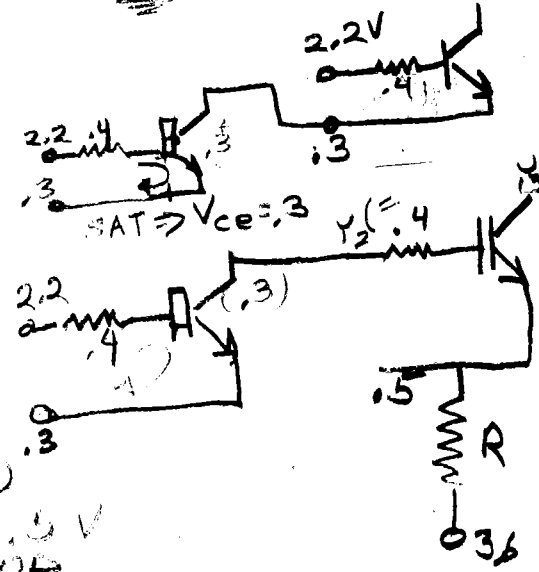 2,2V
.4
2,2 .4
.3
.3
.3
SAT⇒ Vce=.3
Y₂(= .4
2,2
(.3)
.4
.5
.3
R
V
36